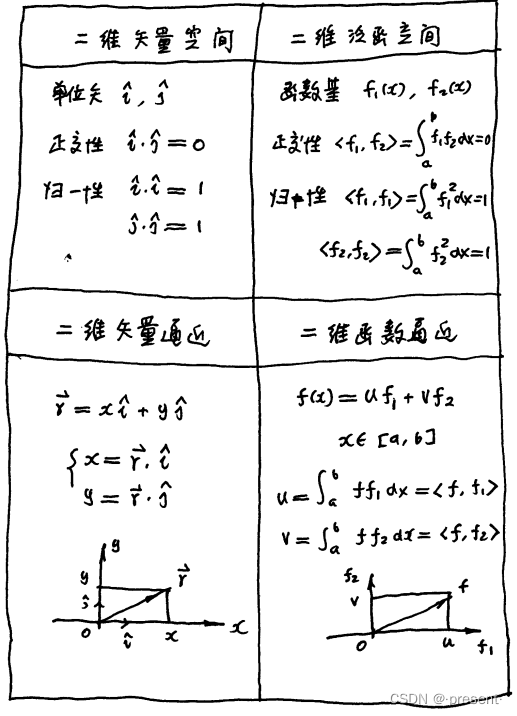 二维矢量空间
单位矢 î, ĵ
正交性 î·ĵ=0
归一性 î·î=1
ĵ·ĵ=1
二维泛函空间
函数基 f₁(x), f₂(x)
正交性 <f₁, f₂>=∫ₐᵇ f₁f₂dx=0
归一性 <f₁, f₁>=∫ₐᵇ f₁²dx=1
<f₂, f₂>=∫ₐᵇ f₂²dx=1
二维矢量逼近
r⃗=xî+yĵ
{x=r⃗·î
y=r⃗·ĵ
y
y
r⃗
ĵ
0
î
x
x
二维函数逼近
f(x)=uf₁+vf₂
x∈[a,b]
u=∫ₐᵇ ff₁dx=<f, f₁>
v=∫ₐᵇ ff₂dx=<f, f₂>
f₂
v
f
0
u
f₁
CSDN @-present-